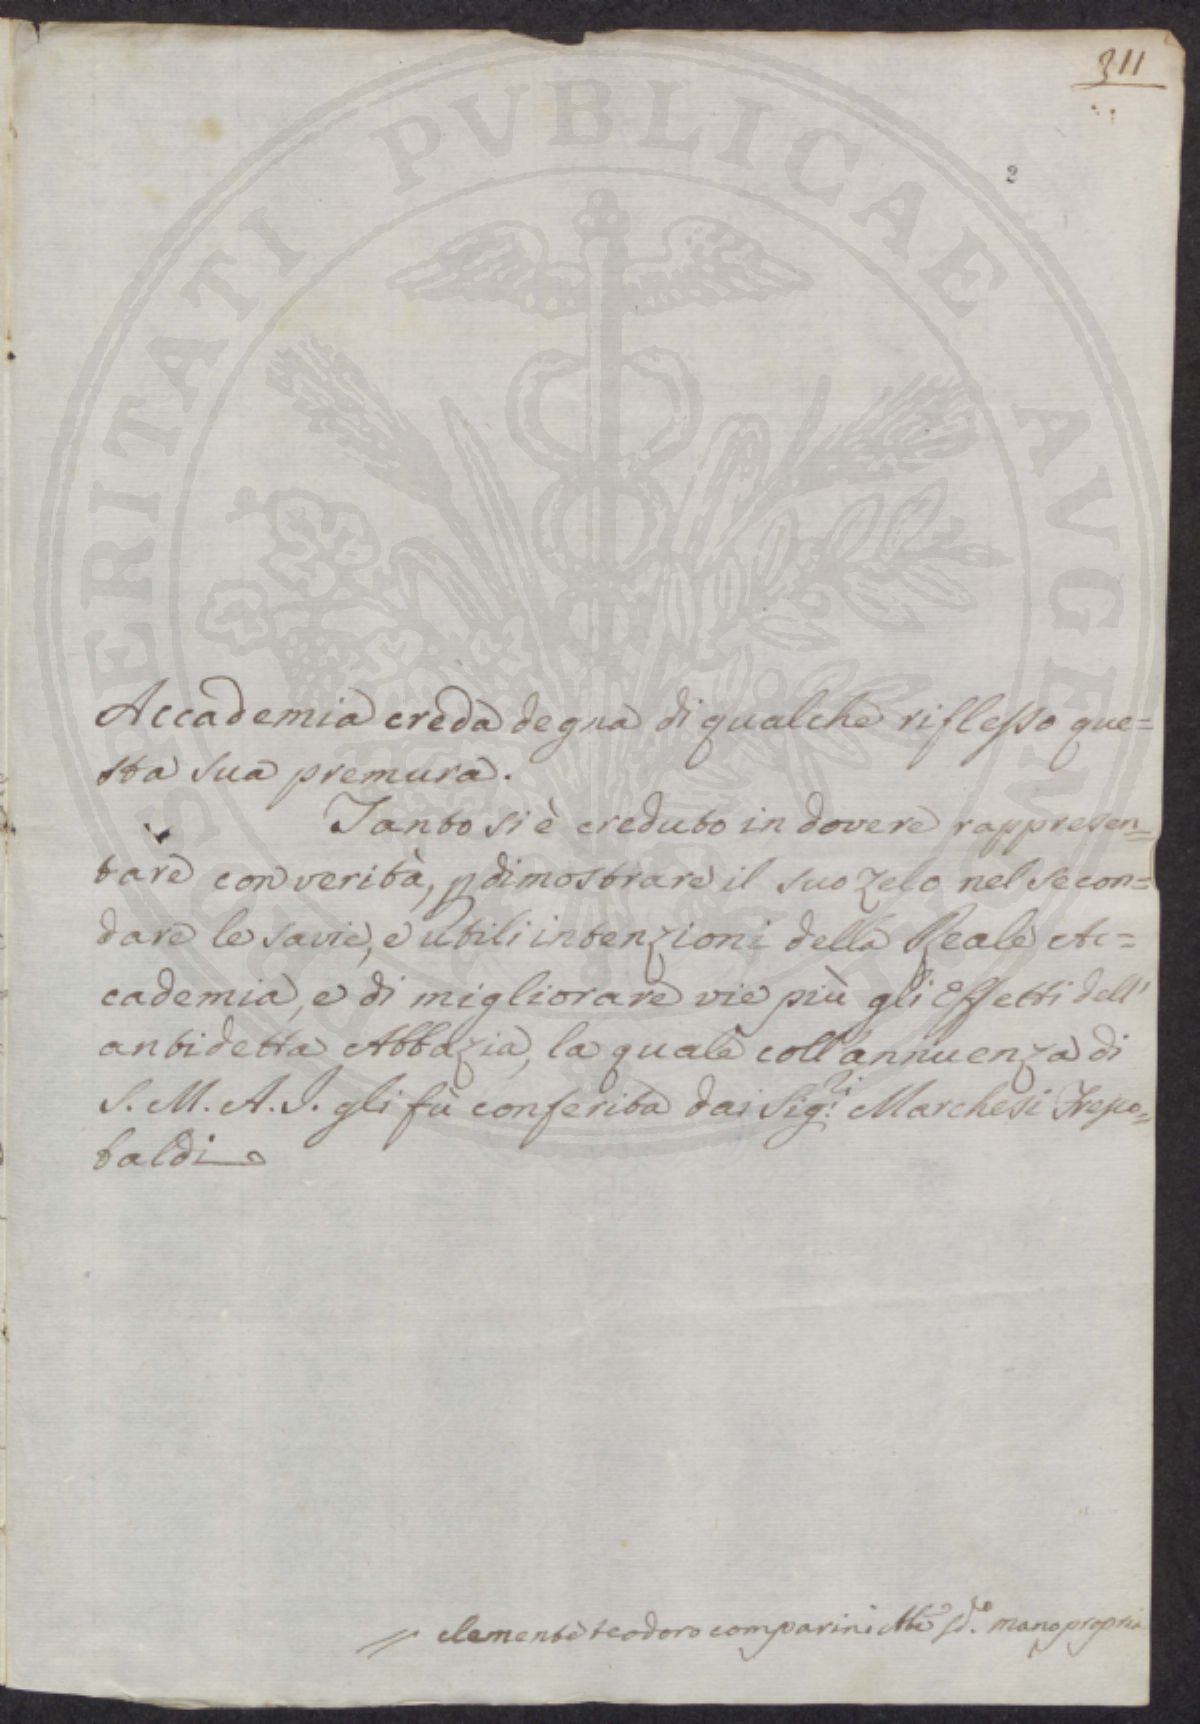 311
2
Accademia creda degna di qualche riflesso que=
sta sua premura.
Tanto si è creduto in dovere rappresen=
tare con verità, p dimostrare il suo zelo nel secon=
dare le savie, e utili intenzioni della Reale Ac=
cademia, e di migliorare vie più gli Effetti dell'
antidetta Abbazia, la quale coll'annuenza di
S. M. A. I. gli fù conferita dai Sig.ri Marchesi Frepo=
baldi
Clemente Teodoro Comparini Abe sd.o mano propria
PROSPERITATI PVBLICAE AVGENDAE